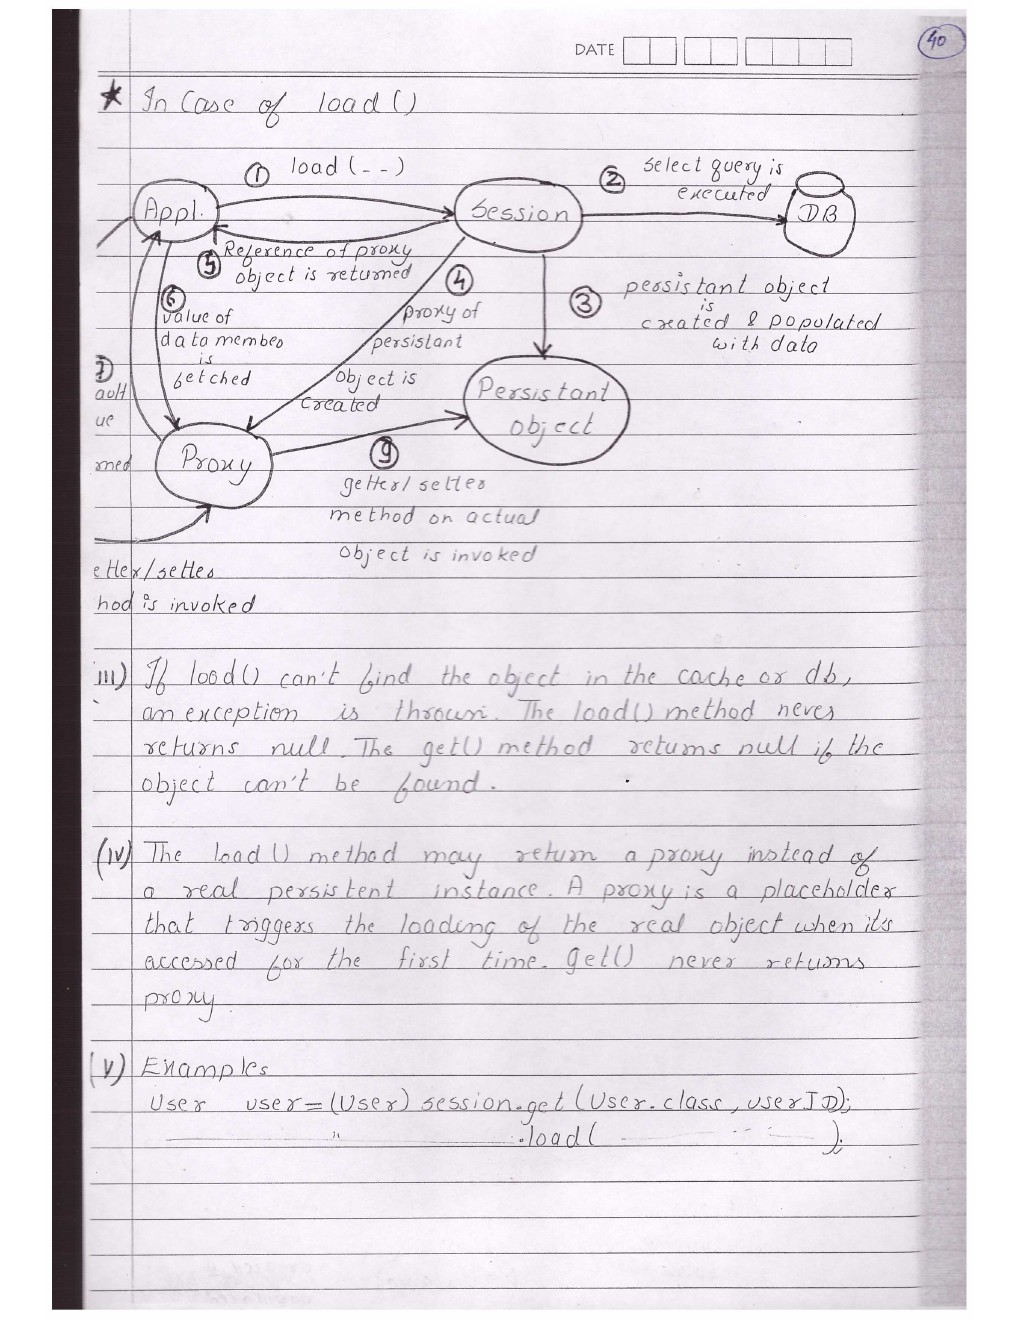 40
DATE
★ In Case of load()
① load(--)
② select query is
executed
Appl.
Session
DB
⑤ Reference of proxy
object is returned
④
proxy of
persistant
object is
created
③ persistant object
is
created & populated
with data
⑥
value of
data member
is
fetched
⑦
ault
ue
rned
Persistant
object
Proxy
⑨
getter/setter
method on actual
object is invoked
etter/setter
hod is invoked
iii) If load() can't find the object in the cache or db,
an exception is thrown. The load() method never
returns null. The get() method returns null if the
object can't be found.
(iv) The load() method may return a proxy instead of
a real persistent instance. A proxy is a placeholder
that triggers the loading of the real object when it's
accessed for the first time. get() never returns
proxy
(v) Examples
User user=(User) session.get(User.class, userID);
——— " ——— .load( ——— );